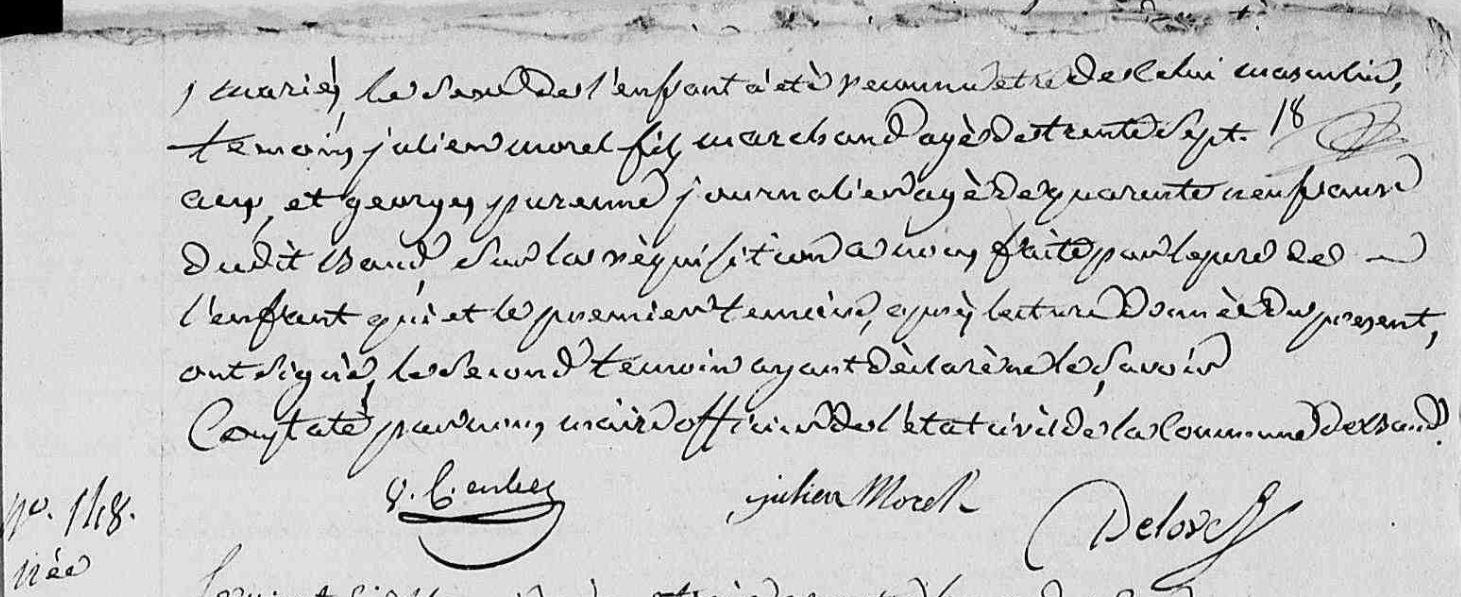 mariés, le sexe de l'enfant à étè reconnu être de celui masculin,
temoins julien morel fils marchand agès de trente sept
18
ans, et georges purenne journalier agè de quarante neuf ans
dudit Baud, Sur la rèquisition a nous faite par le pere de
l'enfant qui et le premier temoin, aprés lecture donnèe du present,
ont signè, le second temoin ayant dèclarè ne le savoir
Constatè par nous, maire officier de l'ètat civil de la Commune de Baud.
julien Morel
n°. 148.
née